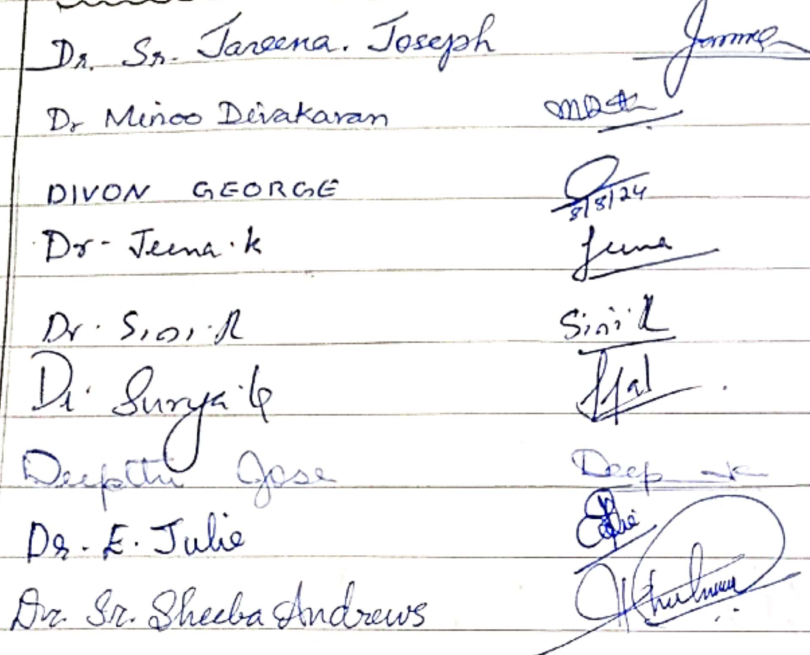 Dr. Sr. Jareena. Joseph
Dr Minoo Divakaran
DIVON GEORGE 8/8/24
Dr - Jeena . k Jeena
Dr . Sini . R Sini R
Dr. Surya . G
Deepthi Jose Deep
Dr. E. Julie
Dr. Sr. Sheeba Andrews